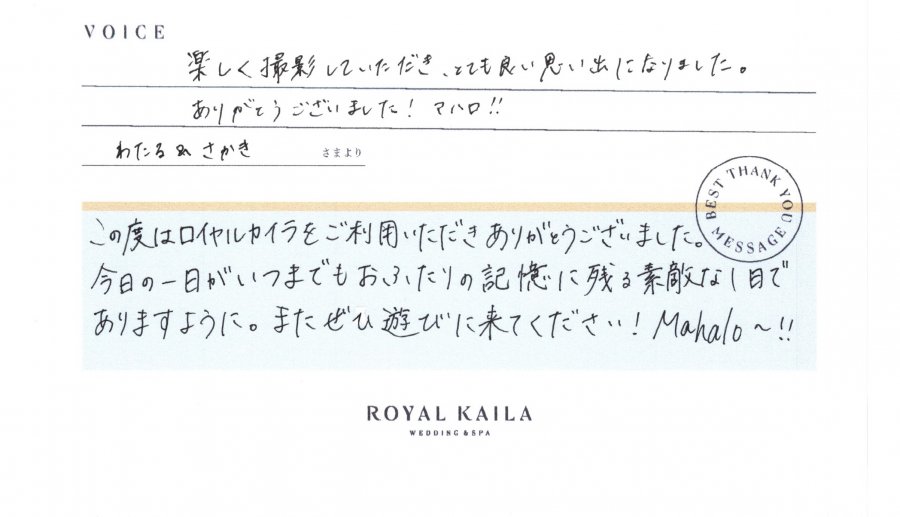 VOICE
楽しく撮影していただき、とても良い思い出になりました。
ありがとうございました！ マハロ!!
わたる & さかき さまより
BEST THANK YOU MESSAGE
この度はロイヤルカイラをご利用いただきありがとうございました。
今日の一日がいつまでもおふたりの記憶に残る素敵な1日で
ありますように。またぜひ遊びに来てください！ Mahalo〜!!
ROYAL KAILA
WEDDING & SPA